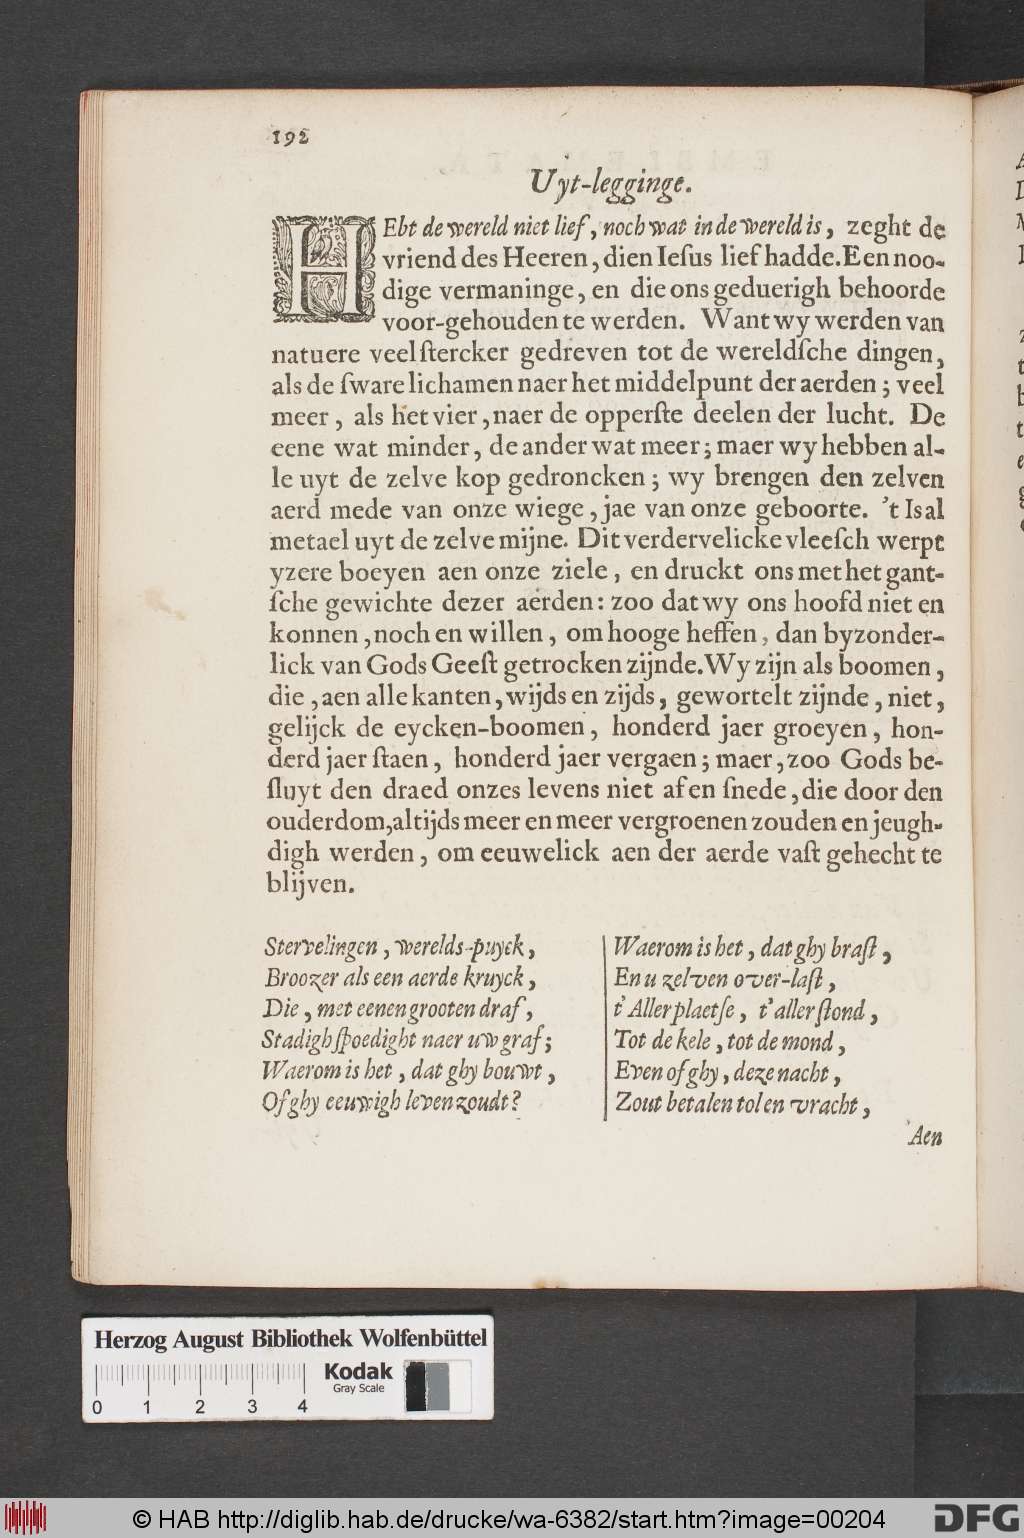 192
Uyt-legginge.
HEbt de wereld niet lief, noch wat in de wereld is, zeght de
vriend des Heeren, dien Ieſus lief hadde. Een noo-
dige vermaninge, en die ons geduerigh behoorde
voor-gehouden te werden. Want wy werden van
natuere veel ſtercker gedreven tot de wereldſche dingen,
als de ſware lichamen naer het middelpunt der aerden; veel
meer, als het vier, naer de opperſte deelen der lucht. De
eene wat minder, de ander wat meer; maer wy hebben al-
le uyt de zelve kop gedroncken; wy brengen den zelven
aerd mede van onze wiege, jae van onze geboorte. 't Is al
metael uyt de zelve mijne. Dit verdervelicke vleeſch werpt
yzere boeyen aen onze ziele, en druckt ons met het gant-
ſche gewichte dezer aerden: zoo dat wy ons hoofd niet en
konnen, noch en willen, om hooge heffen, dan byzonder-
lick van Gods Geeſt getrocken zijnde. Wy zijn als boomen,
die, aen alle kanten, wijds en zijds, gewortelt zijnde, niet,
gelijck de eycken-boomen, honderd jaer groeyen, hon-
derd jaer ſtaen, honderd jaer vergaen; maer, zoo Gods be-
ſluyt den draed onzes levens niet af en ſnede, die door den
ouderdom, altijds meer en meer vergroenen zouden en jeugh-
digh werden, om eeuwelick aen der aerde vaſt gehecht te
blijven.
Stervelingen, werelds-puyck,
Broozer als een aerde kruyck,
Die, met eenen grooten draf,
Stadigh ſpoedight naer uw graf;
Waerom is het, dat ghy bouwt,
Of ghy eeuwigh leven zoudt?
Waerom is het, dat ghy braſt,
En u zelven over-laſt,
t' Aller plaetſe, t' aller ſtond,
Tot de kele, tot de mond,
Even of ghy, deze nacht,
Zout betalen tol en vracht,
Aen
Herzog August Bibliothek Wolfenbüttel
Kodak
Gray Scale
0 1 2 3 4
© HAB http://diglib.hab.de/drucke/wa-6382/start.htm?image=00204
DFG